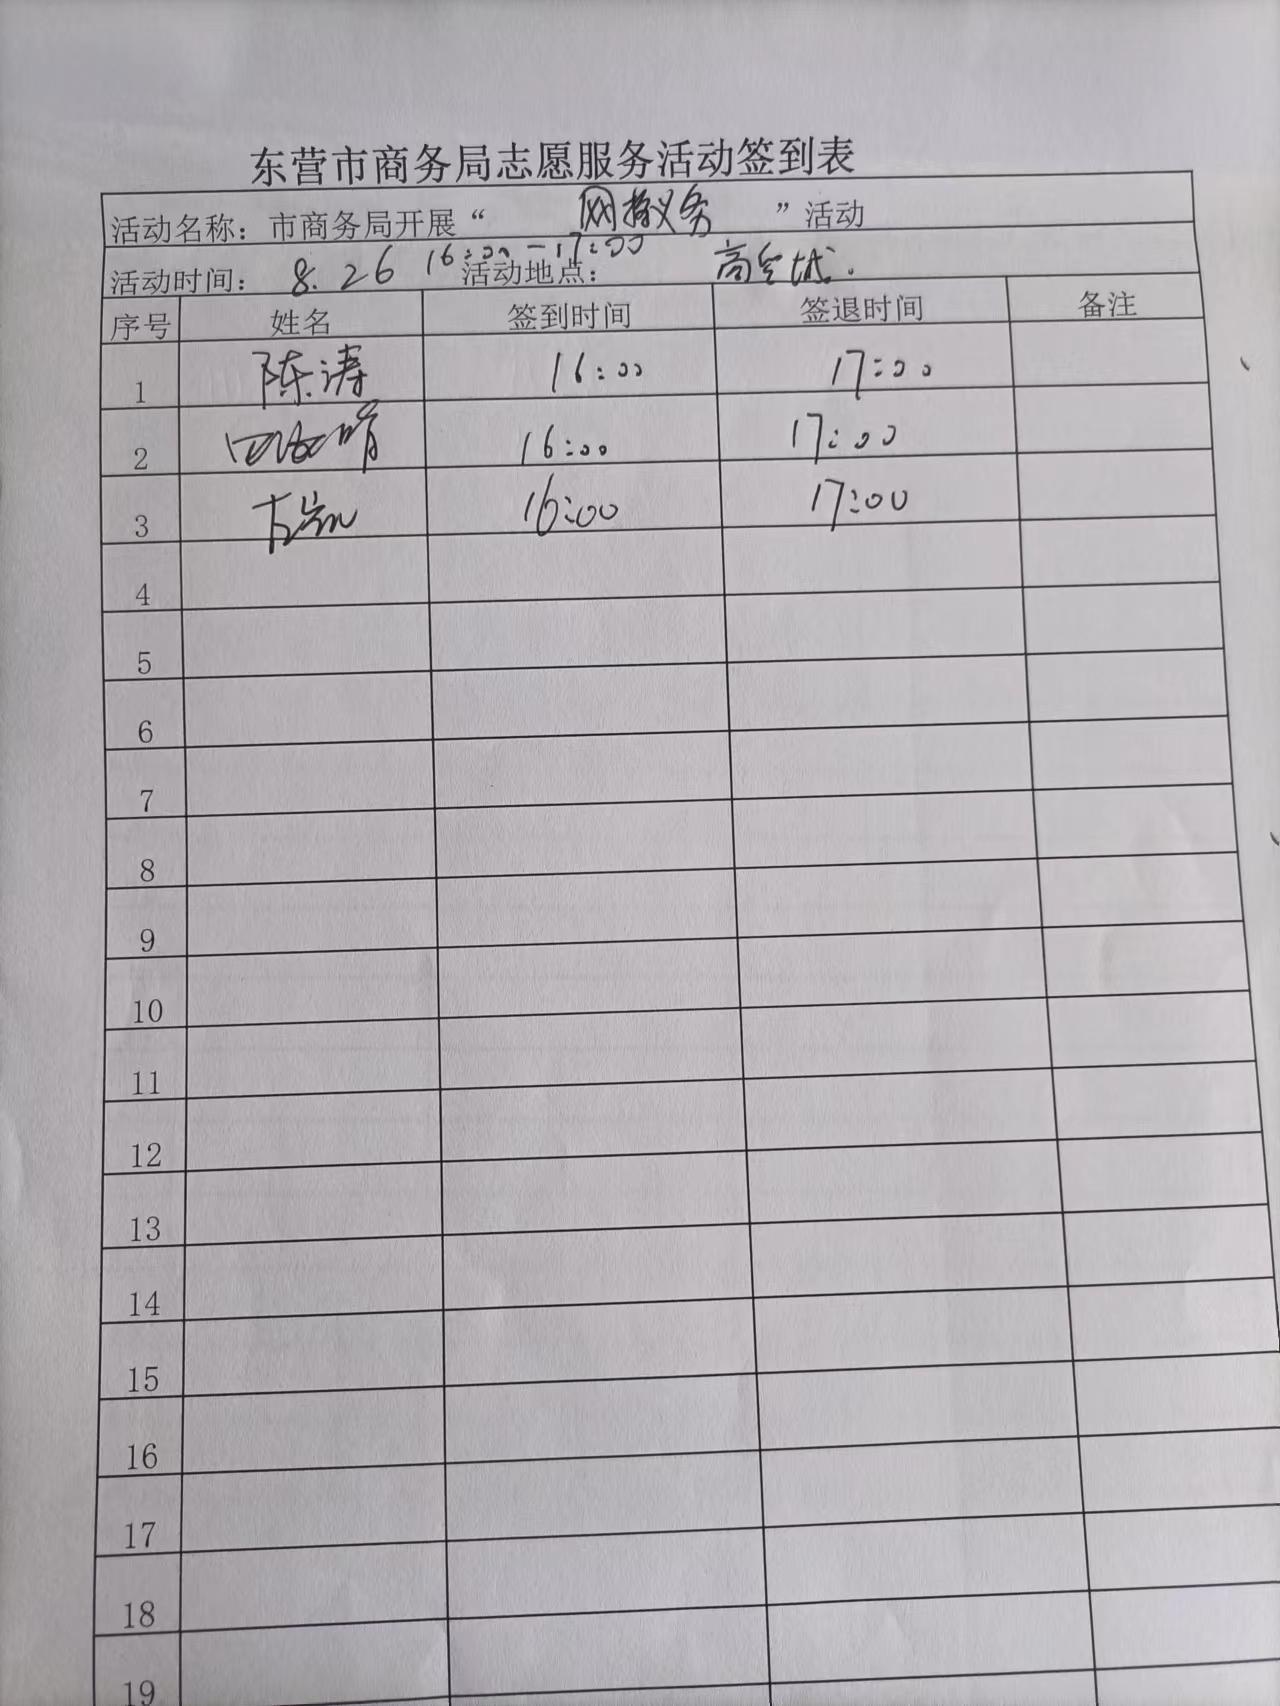 东营市商务局志愿服务活动签到表
活动名称：市商务局开展“ 网格义务 ”活动
活动时间： 8.26 16:00-17:00 活动地点：
序号 姓名 签到时间 签退时间 备注
1 陈涛 16:00 17:00
2 16:00 17:00
3 16:00 17:00
4
5
6
7
8
9
10
11
12
13
14
15
16
17
18
19